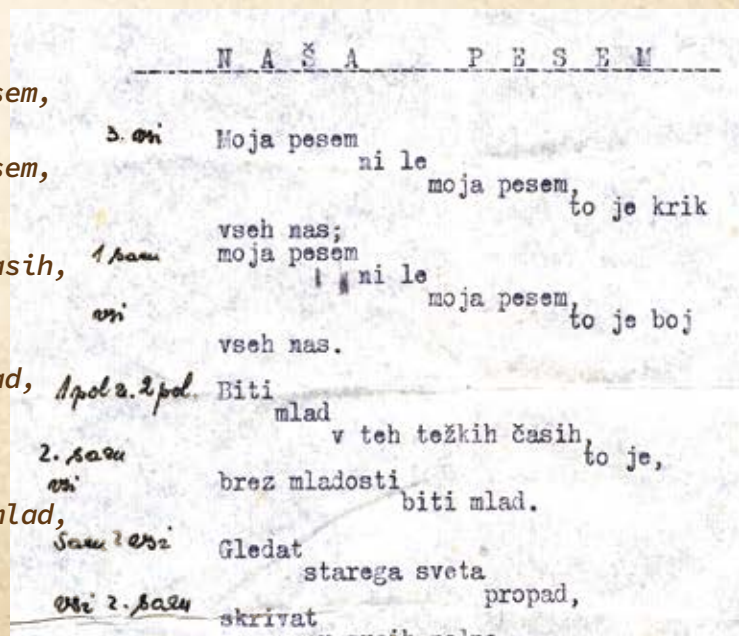 NAŠA PESEM
sem,
3. vsi Moja pesem
ni le
sem,
moja pesem,
to je krik
vseh nas;
1 sam moja pesem
asih,
ni le
moja pesem,
vsi to je boj
vseh nas.
ad,
1 pol z. 2 pol. Biti
mlad
v teh težkih časih,
2. sam to je,
vsi brez mladosti
biti mlad.
mlad,
Sam z vsi Gledat
starega sveta
propad,
vsi z. sam skrivat